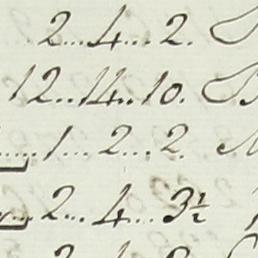 2...4...2.
12..14..10.
1...2...2.
2...4...3½